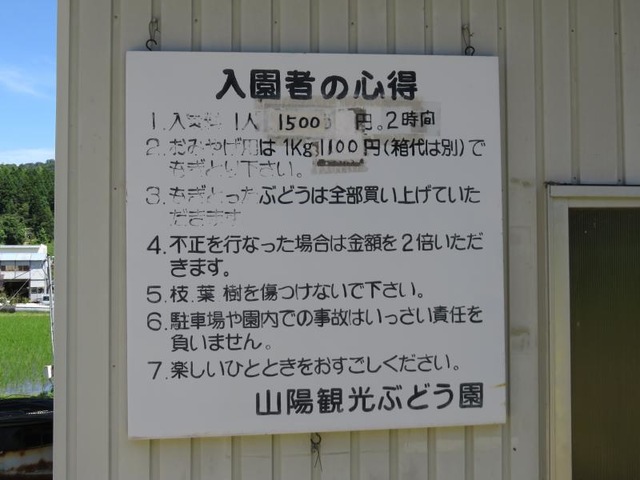 入園者の心得
1. 入園料 1人 1500円。2時間
2. おみやげ用は1Kg 1100円(箱代は別)で
もぎとり下さい。
3. もぎとったぶどうは全部買い上げていた
だきます
4. 不正を行なった場合は金額を2倍いただ
きます。
5. 枝.葉 樹を傷つけないで下さい。
6. 駐車場や園内での事故はいっさい責任を
負いません。
7. 楽しいひとときをおすごしください。
山陽観光ぶどう園